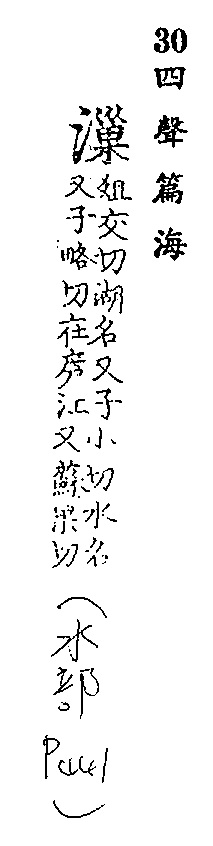 30四聲篇海
漅
徂交切湖名又子小切水名
又子略切在房江又蘇果切
（水部
）